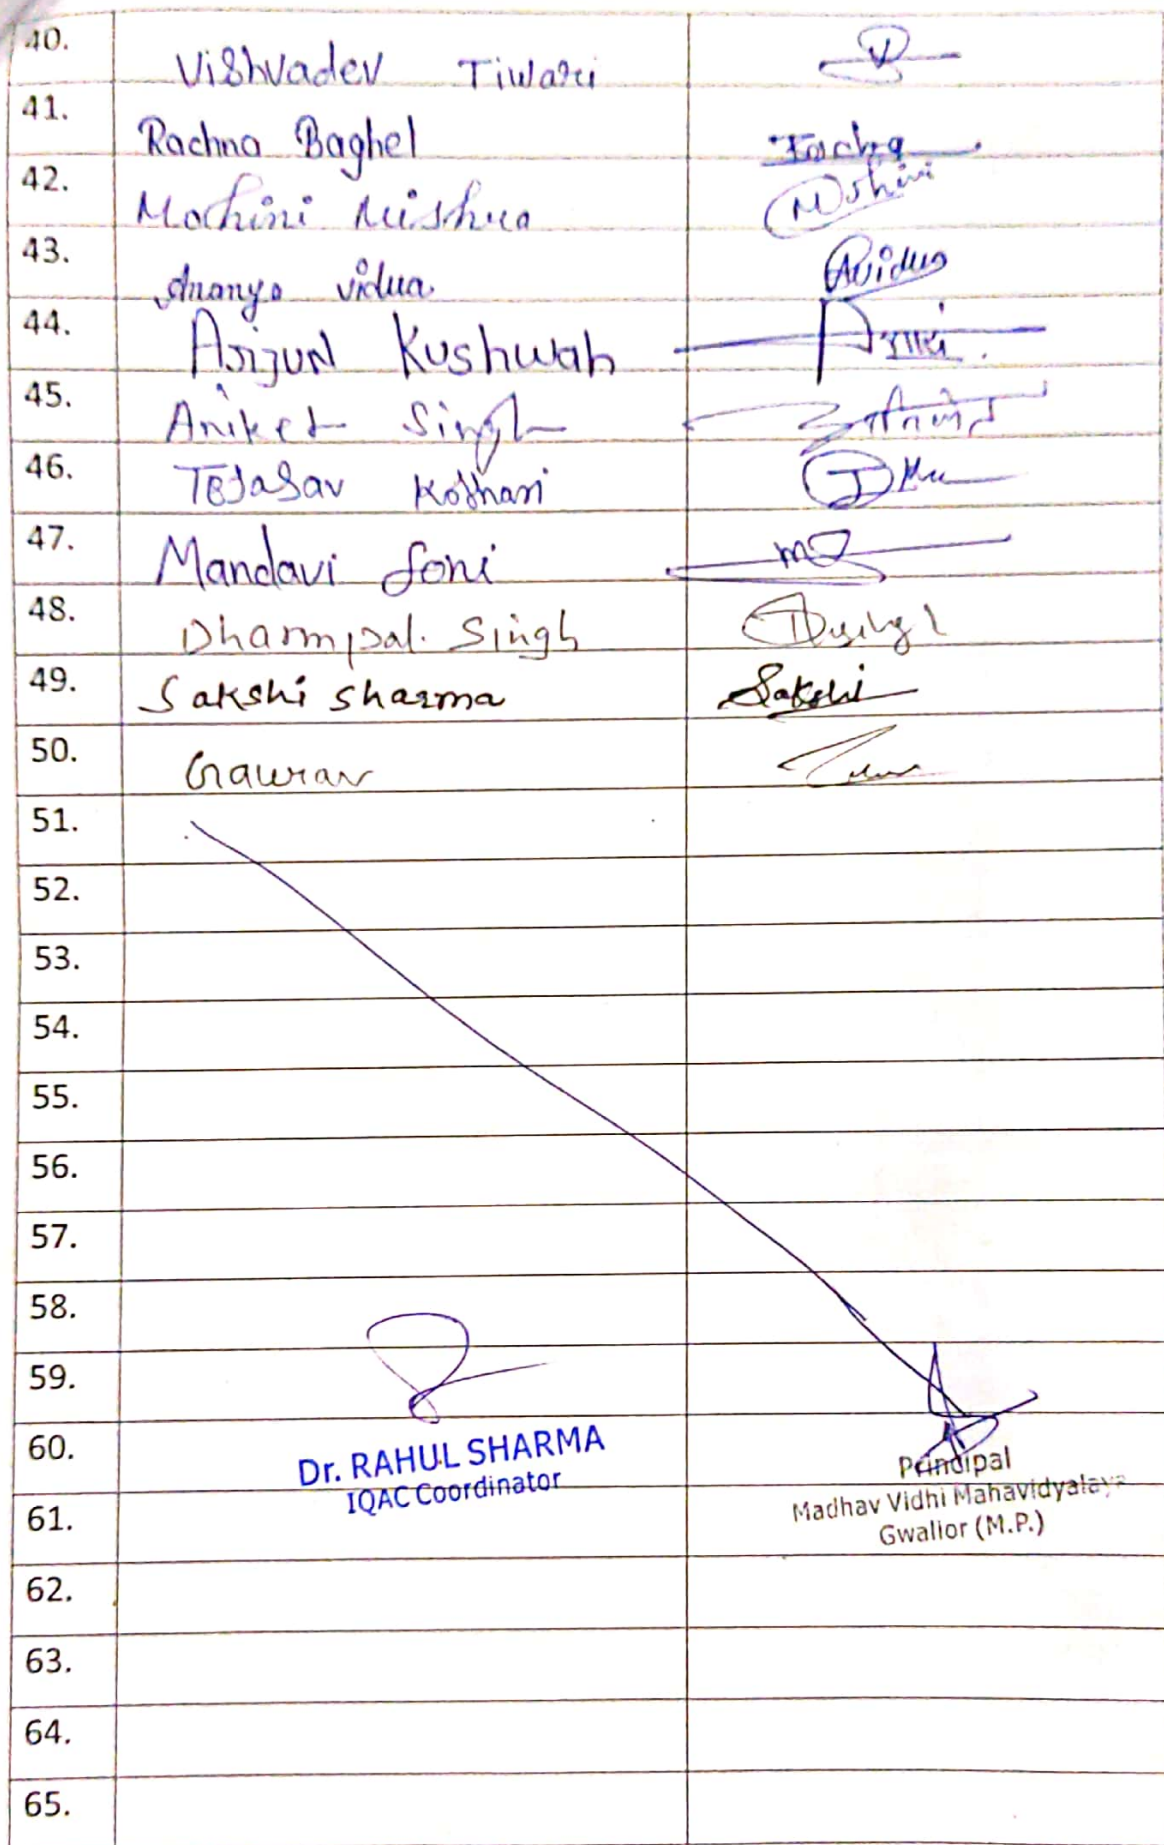 40. Vishvadev Tiwari
41. Rachna Baghel
42. Mohini Mishra Mohini
43. Ananya Vidua AVidua
44. Arjun Kushwah
45. Aniket Singh
46. Tejasav Kothari
47. Mandavi Soni
48. Dharmpal. Singh
49. Sakshi Sharma Sakshi
50. Gaurav
51.
52.
53.
54.
55.
56.
57.
58.
59.
60. Dr. RAHUL SHARMA Principal
IQAC Coordinator Madhav Vidhi Mahavidyalaya
61. Gwalior (M.P.)
62.
63.
64.
65.